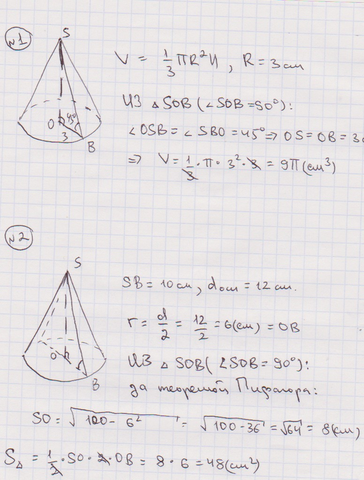 N1
S
V = 1/3 πR²H , R = 3 см
Из △ SOB (∠SOB = 90°):
∠OSB = ∠SBO = 45° ⇒ OS = OB = 3
O 45°
3 B
⇒ V = 1/3 · π · 3² · 3 = 9π (см³)
N2
S
SB = 10 см, dосн = 12 см.
r = d/2 = 12/2 = 6(см) = OB
O
B
Из △ SOB (∠SOB = 90°):
да теоремой Пифагора:
SO = √100 - 6² = √100 - 36 = √64 = 8(см)
S△ = 1/2 · SO · 2 · OB = 8 · 6 = 48(см²)